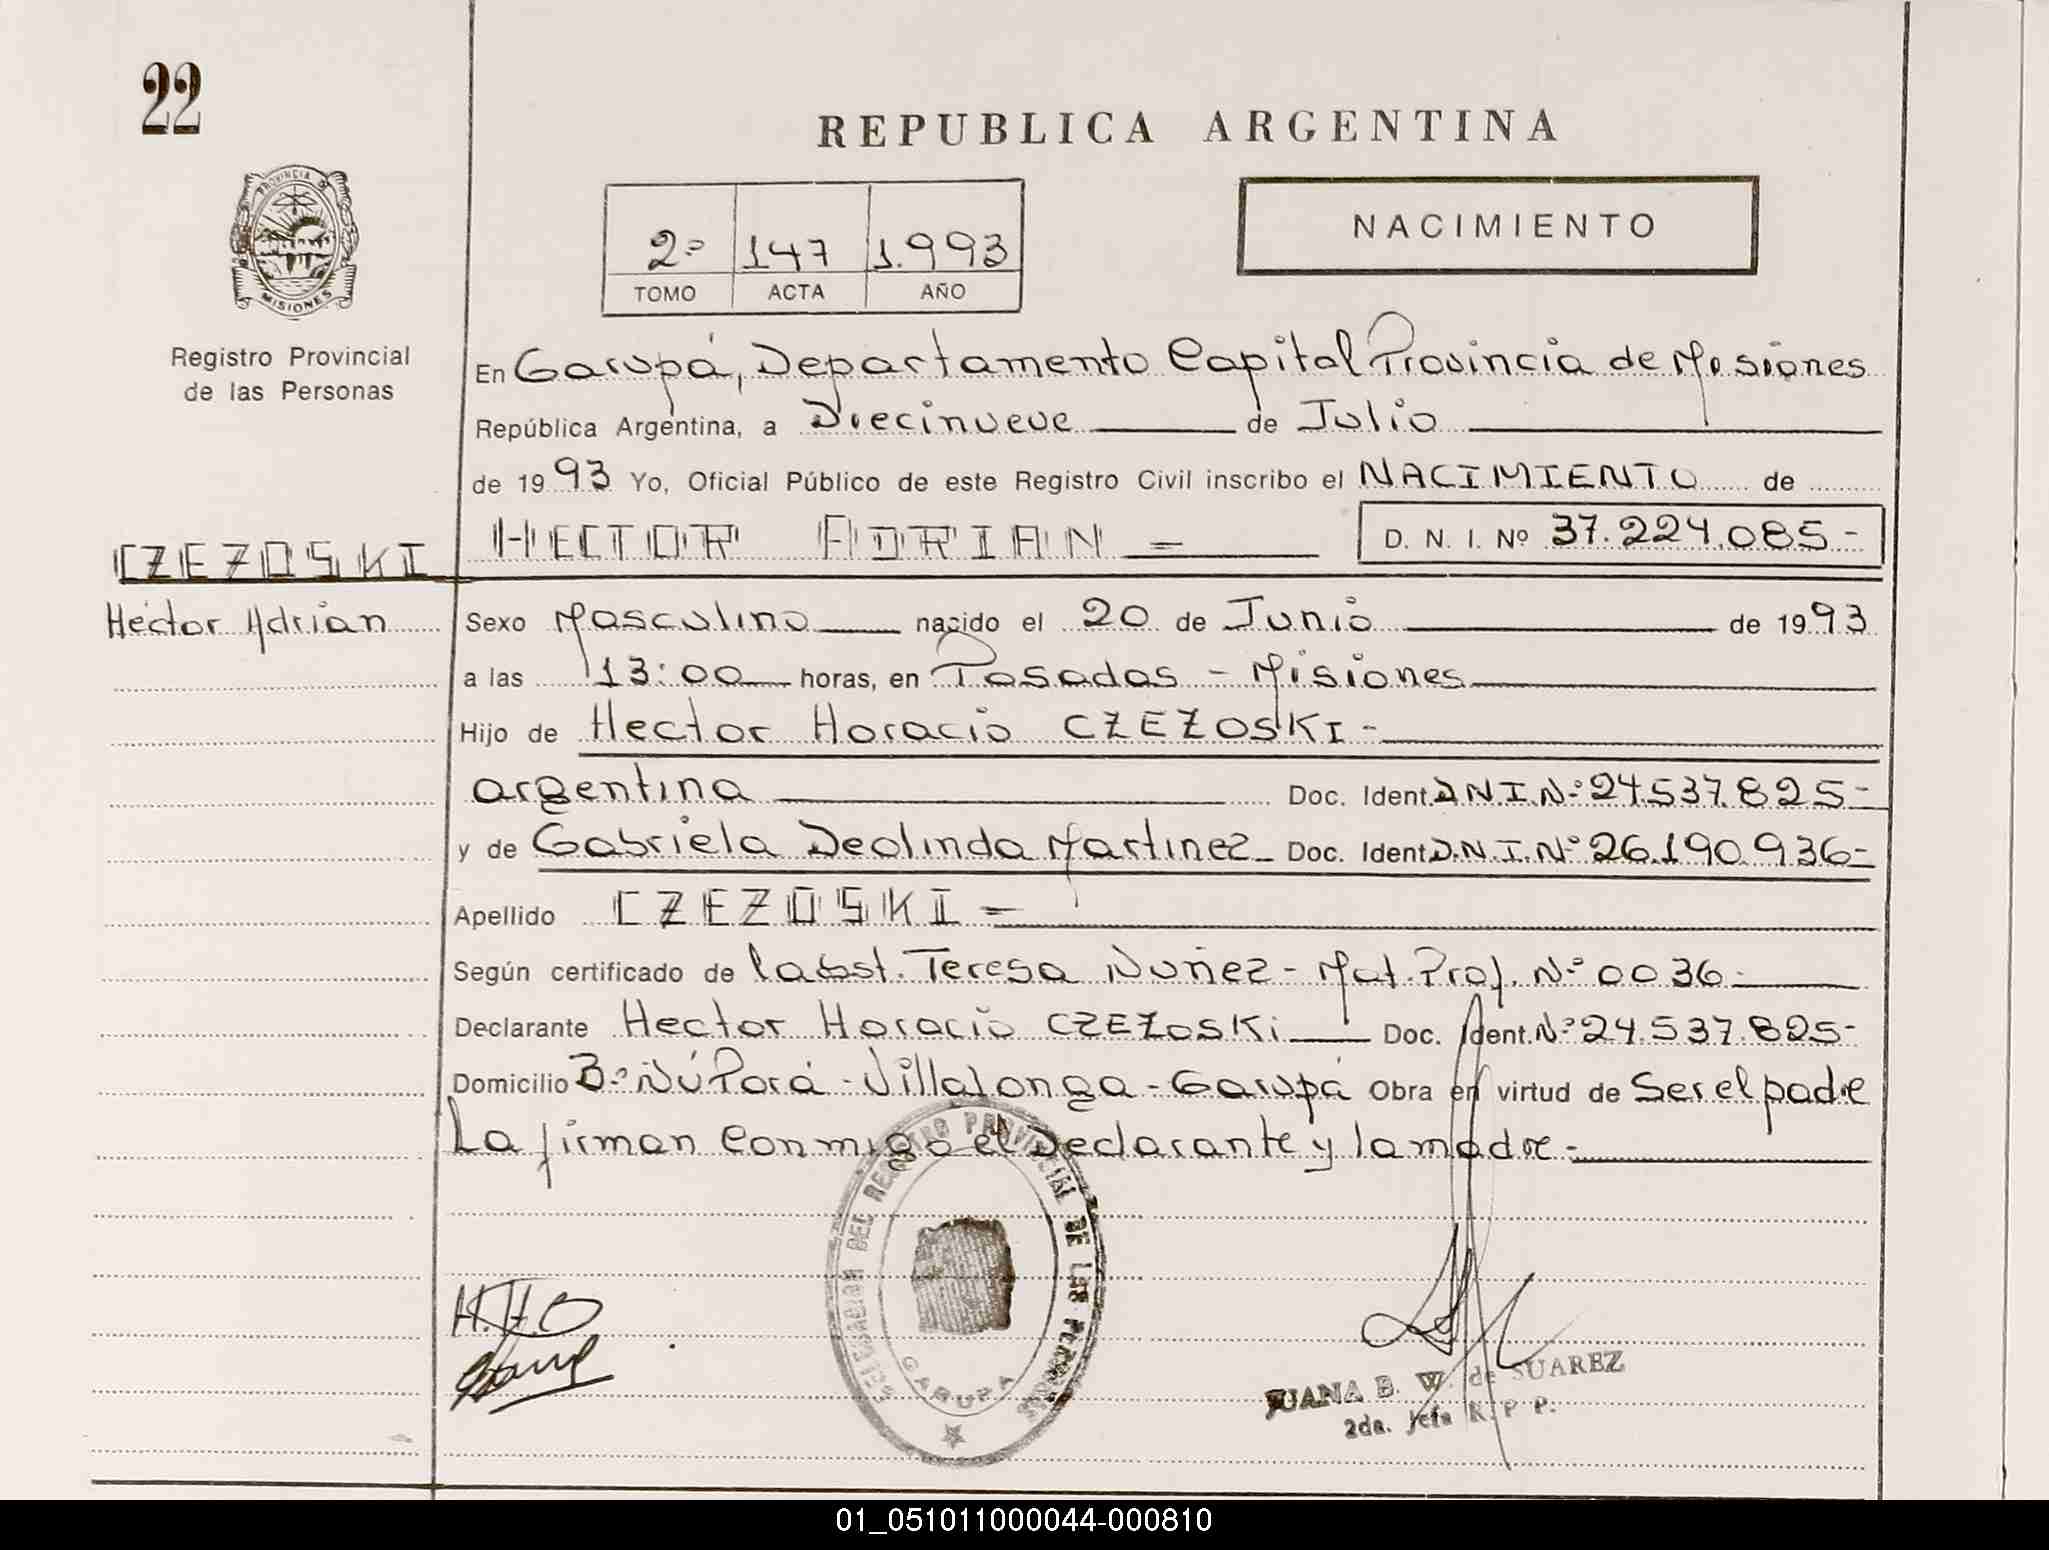 22
REPUBLICA ARGENTINA
PROVINCIA DE
MISIONES
Registro Provincial
de las Personas
2º 147 1.993
TOMO ACTA AÑO
NACIMIENTO
En Garupá, Departamento Capital Provincia de Misiones
República Argentina, a Diecinueve de Julio
de 1993 Yo, Oficial Público de este Registro Civil inscribo el NACIMIENTO de
CZEZOSKI HECTOR ADRIAN = D. N. I. Nº 37.224.085-
Héctor Adrián Sexo Masculino nacido el 20 de Junio de 1993
a las 13:00 horas, en Posadas - Misiones
Hijo de Hector Horacio CZEZOSKI-
argentina Doc. Ident. D.N.I.Nº 24.537.825-
y de Gabriela Deolinda Martinez Doc. Ident. D.N.I.Nº 26.190.936-
Apellido CZEZOSKI =
Según certificado de la obst. Teresa Nuñez - Mat. Prof. Nº 0036-
Declarante Hector Horacio CZEZOSKi Doc. Ident. Nº 24.537.825-
Domicilio Bº Ñú Porá - Villalonga - Garupá Obra en virtud de Ser el padre
La firman conmigo el Declarante y la madre.-
DELEGACION DEL REGISTRO PROVINCIAL DE LAS PERSONAS
GARUPA
H.H.C
JUANA B. W. de SUAREZ
2da. Jefa R. P. P.
01_051011000044-000810